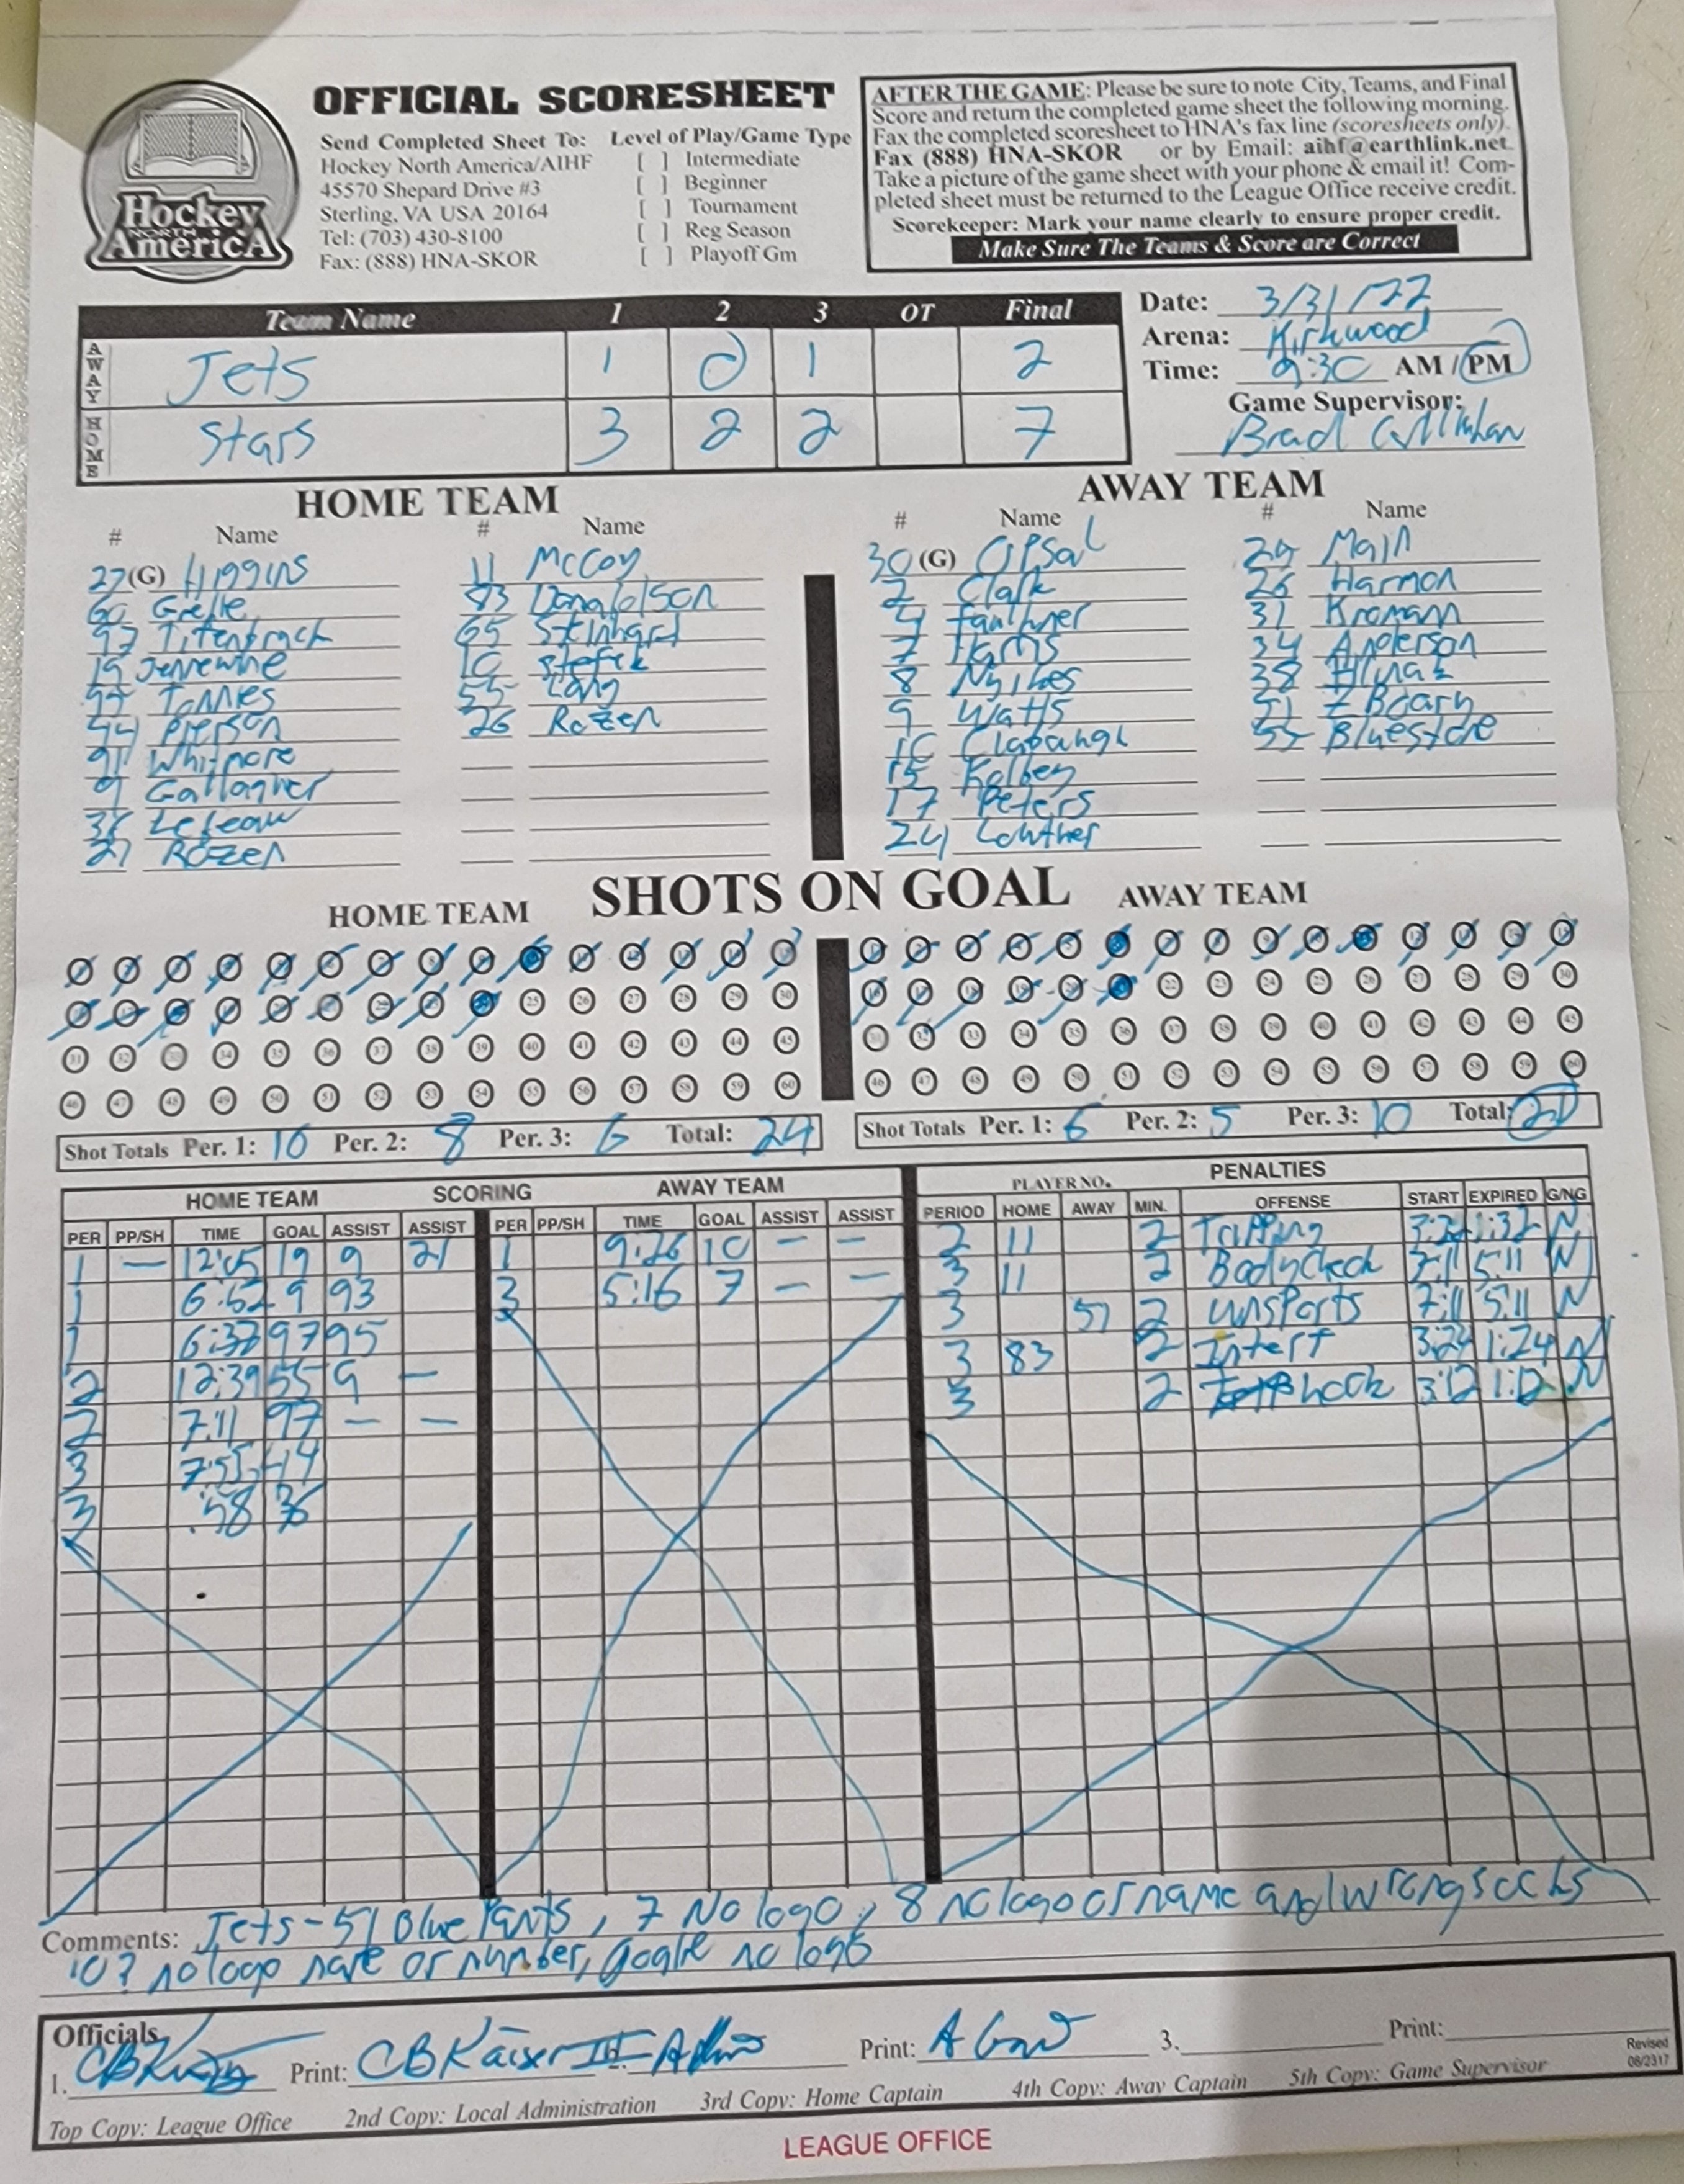 OFFICIAL SCORESHEET
Hockey
NORTH
AmericA
Send Completed Sheet To:
Hockey North America/AIHF
45570 Shepard Drive #3
Sterling, VA USA 20164
Tel: (703) 430-8100
Fax: (888) HNA-SKOR
Level of Play/Game Type
[ ] Intermediate
[ ] Beginner
[ ] Tournament
[ ] Reg Season
[ ] Playoff Gm
AFTER THE GAME: Please be sure to note City, Teams, and Final
Score and return the completed game sheet the following morning.
Fax the completed scoresheet to HNA's fax line (scoresheets only).
Fax (888) HNA-SKOR or by Email: aihf@earthlink.net
Take a picture of the game sheet with your phone & email it! Com-
pleted sheet must be returned to the League Office receive credit.
Scorekeeper: Mark your name clearly to ensure proper credit.
Make Sure The Teams & Score are Correct
Team Name 1 2 3 OT Final
AWAY Jets 1 0 1 2
HOME Stars 3 2 2 7
Date: 3/31/22
Arena: Kirkwood
Time: 9:30 AM / PM
Game Supervisor:
Brad Callahan
HOME TEAM
# Name # Name
27 (G) Higgins 11 McCoy
60 Grelle 83 Donaldson
97 Titenbrach 65 Steinhard
19 Jennewine 10 Stefek
Tonnies 55 Lang
44 Pierson 26 Rozen
91 Whitmore
9 Gallagher
Lebeau
21 Rozen
AWAY TEAM
# Name # Name
30 (G) Opsal 29 Main
2 Clark 26 Harmon
4 Faulkner 31 Kromann
7 Harris 34 Anderson
8 Nyikes 38
9 Watts 51
10 Clabaugh 55 Bluestone
15 Kolbey
17 Peters
24 Lowther
SHOTS ON GOAL
HOME TEAM AWAY TEAM
Shot Totals Per. 1: 10 Per. 2: 8 Per. 3: 6 Total: 24
Shot Totals Per. 1: 6 Per. 2: 5 Per. 3: 10 Total: 21
HOME TEAM SCORING AWAY TEAM
PER PP/SH TIME GOAL ASSIST ASSIST PER PP/SH TIME GOAL ASSIST ASSIST
1 — 12:05 19 9 21 1 9:26 10 — —
1 6:52 9 93 3 5:16 7 — —
1 6:37 97 95
2 12:39 55 9 —
2 7:11 97 — —
3 7:55 14
3 .58 36
PENALTIES
PLAYER NO.
PERIOD HOME AWAY MIN. OFFENSE START EXPIRED G/NG
2 11 2 Tripping 3:32 1:32 N
3 11 2 Body Check 7:11 5:11 N
3 51 2 Unsports 7:11 5:11 N
3 83 2 Interf 3:24 1:24 N
3 2 hook 3:12 1:12 N
Comments: Jets - 51 Blue Pants, 7 No logo, 8 no logo or name and wrong socks
10? no logo name or number, goalie no logo
Officials
1. Print: CB Kaiser III 2. Print: 3. Print:
Revised
08/2317
Top Copy: League Office 2nd Copy: Local Administration 3rd Copy: Home Captain 4th Copy: Away Captain 5th Copy: Game Supervisor
LEAGUE OFFICE